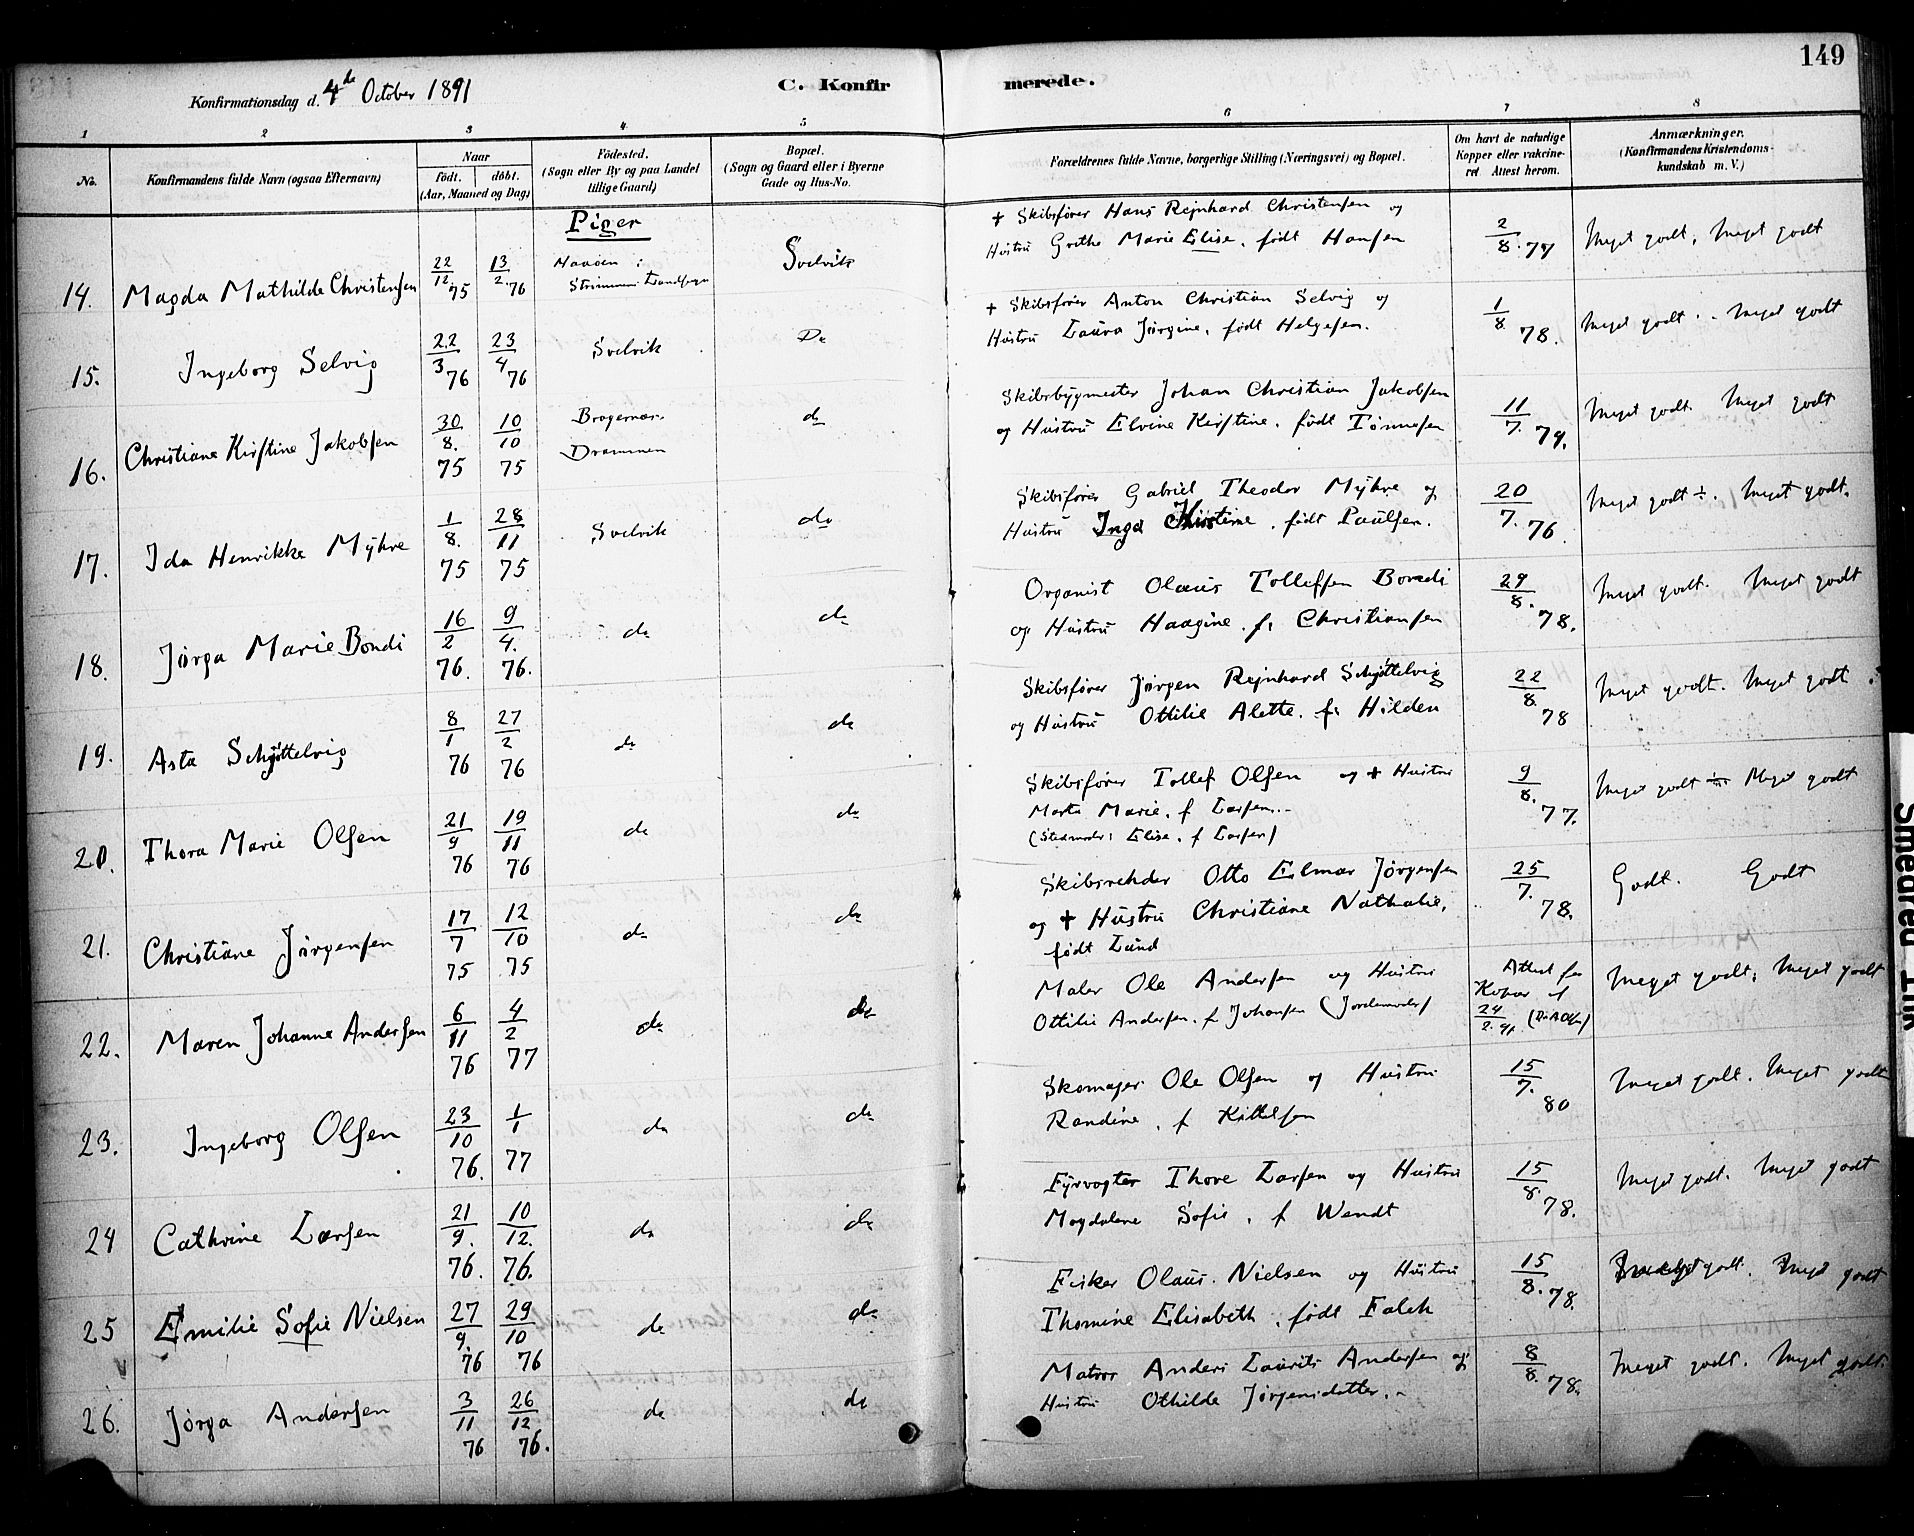 149
Konfirmationsdag d. 4de October 1891
C. Konfirmerede.
1 2 3 4 5 6 7 8
No. Konfirmandens fulde Navn (ogsaa Efternavn) Naar født. døbt. (Aar, Maaned og Dag) Fødested. (Sogn eller By og paa Landet tillige Gaard) Bopæl. (Sogn og Gaard eller i Byerne Gade og Hus-No. Forældrenes fulde Navne, borgerlige Stilling (Næringsvei) og Bopæl. Om havt de naturlige Kopper eller vakcineret. Attest herom. Anmærkninger. (Konfirmandens Kristendomskundskab m. V.)
Piger
14. Magda Mathilde Christensen 22/12 75 13/2 76 Svelvik + Skibsfører Hans Rejnhard Christensen og Hustru Grethe Marie Elise, født Hansen 2/8 79 Meget godt, Meget godt
15. Ingeborg Selvig 22/3 76 23/4 76 Svelvik Do + Skibsfører Anton Christian Selvig og Hustru Laura Jørgine, født Helgesen. 1/8 78. Meget godt. Meget godt
16. Christiane Kirstine Jakobsen 30/8. 75 10/10 75 Bragernæs Drammen do Skibsbygmester Johan Christian Jakobsen og Hustru Elvine Kirstine, født Tønnesen 11/7. 79. Meget godt. Meget godt
17. Ida Henrikke Myhre 1/8. 75 28/11 75 Svelvik do Skibsfører Gabriel Theodor Myhre og Hustru Inga Kirstine, født Paulsen. 20/7. 76. Meget godt ÷. Meget godt.
18. Jørga Marie Bondi 16/2 76. 9/4. 76. do do Organist Olaus Tollefsen Bondi og Hustru Haagine. f. Christiansen 29/8. 78. Meget godt. Meget godt
19. Asta Schjøttelvig 8/1 76 27/2 76 do do Skibsfører Jørgen Rejnhard Schjøttelvig og Hustru Ottilie Alette. f. Hilden 22/8. 78 Meget godt. Meget godt
20. Thora Marie Olsen 21/9 76 19/11 76 do do Skibsfører Tollef Olsen og + Hustru Marte Marie, f Larsen. (Stedmoder: Elise, f Larsen) 9/8. 77. Meget godt Meget godt
21. Christiane Jørgensen 17/7 75 12/10 75 do do Skibsrehder Otto Eilmar Jørgensen og + Hustru Christiane Nathalie, født Lund 25/7. 78. Godt. Godt
22. Maren Johanne Andersen 6/11 76 4/2 77 do do Maler Ole Andersen og Hustru Ottilie Andersen. f Johansen (Jordemoder) Attest for Kopper af 24/2. 91. Meget godt, Meget godt
23. Ingeborg Olsen 23/10 76. 1/1 77 do do Skomager Ole Olsen og Hustru Randine, f Kittelsen 15/7. 80 Meget godt. Meget godt
24 Cathrine Larsen 21/9. 76. 10/12. 76. do do Fyrvogter Thore Larsen og Hustru Magdalene Sofie, f Wendt 15/8 78. Meget godt. Meget godt
25 Emilie Sofie Nielsen 27/9. 76 29/10 76 do do Fisker Olaus Nielsen og Hustru Thomine Elisabeth, født Falck 15/8. 78. Meget godt. Meget godt
26. Jørga Andersen 3/11 76 26/12 76. do do Matros Anders Laurits Andersen og Hustru Othilde Jørgensdatter. 8/8. 78. Meget godt. Meget godt.
Smeared Ink